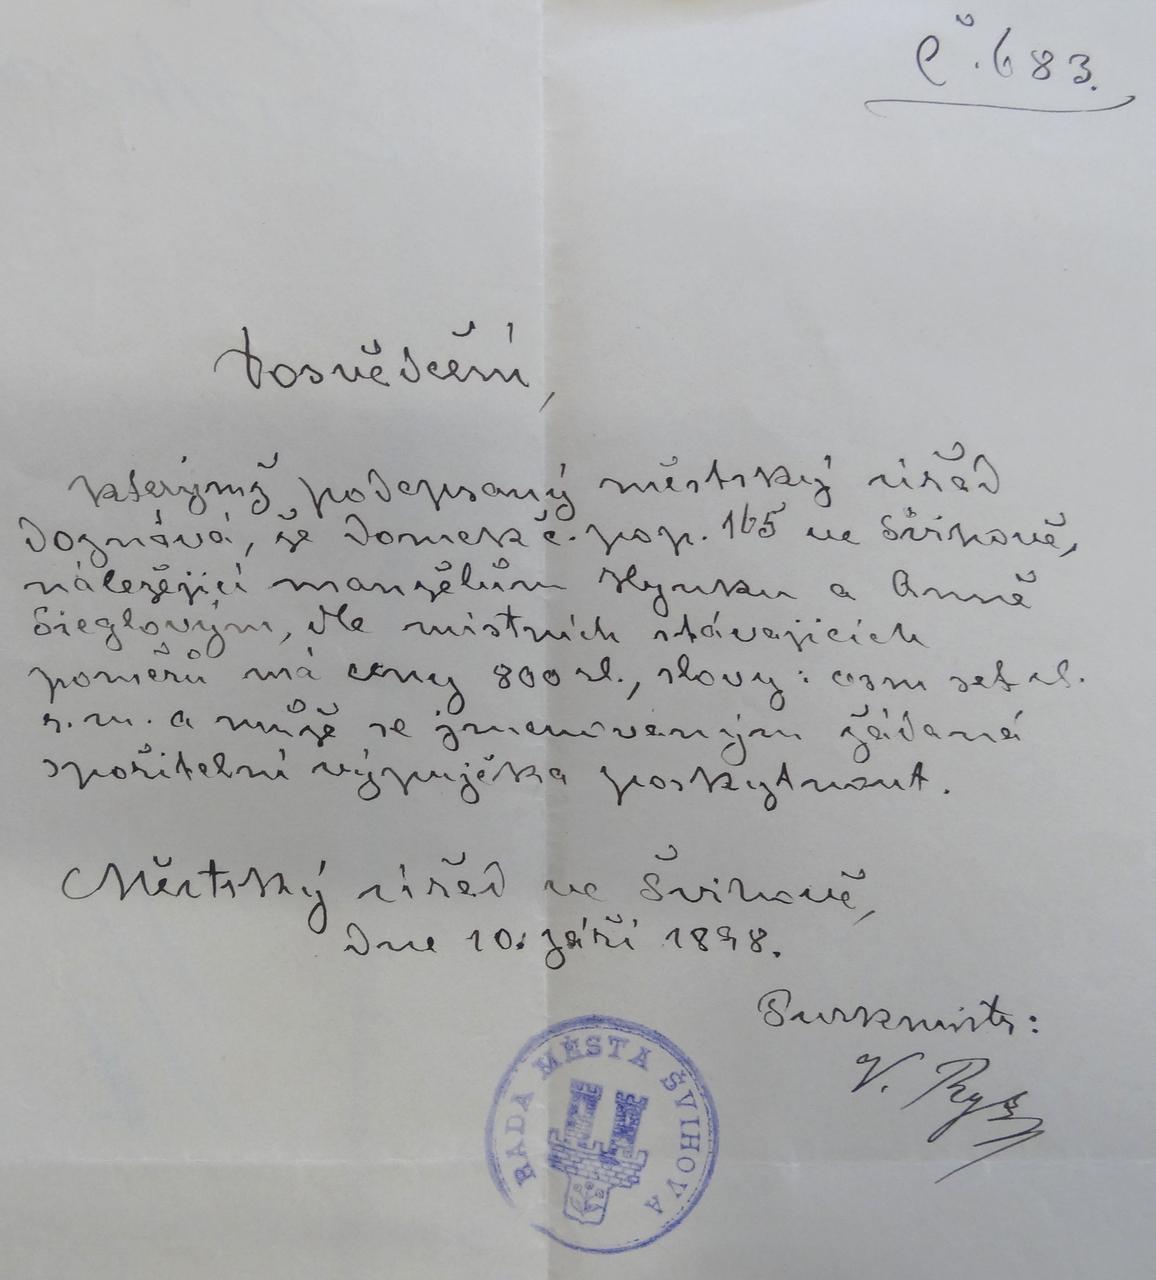 Č. 683.
Dosvědčení,
kterýmž podepsaný městský úřad
doznává, že domek č. pop. 165 ve Švihově,
náležející manželům Hynku a Anně
Sieglovým, dle místních stávajících
poměrů má ceny 800 zl., slovy: osm set zl.
r. m. a může se jmenovaným žádaná
spořitelní výpujčka poskytnout.
Městský úřad ve Švihově,
dne 10. září 1898.
Purkmistr:
V.
RADA MĚSTA ŠVIHOVA